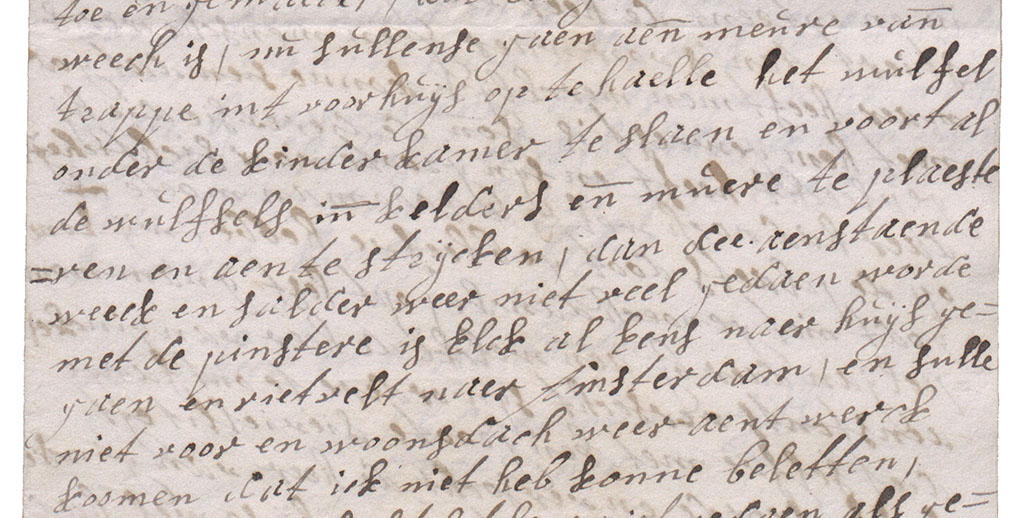 toe en gemaect,
weech is, nu sullense gaen aen meure van
trappe int voorhuijs op te haelle het wulfsel
onder de kinder kamer te slaen en voort al
de wulfsels in kelders en muere te plaeste
=ren en aen te strijcken, dan dee aenstaende
weeck en salder weer niet veel gedaen worde
met de pinstere is elck al eens naer huijs ge=
gaen en rietvelt naer Amsterdam, en sulle
niet voor en woonsdach weer aent werck
koomen dat ick niet heb konne beletten,
gedaen als ge=